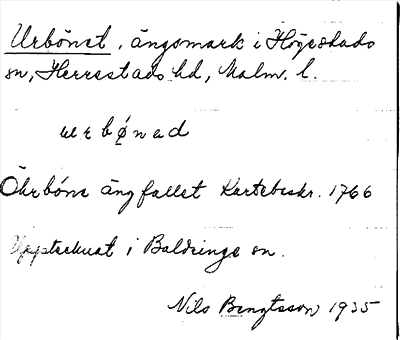 Urbönet, ängsmark i Högestads
sn, Herrestads hd, Malm. l.
urbǿnad
Öhrböne äng fallet Kartebeskr. 1766
Upptecknat i Baldringe sn.
Nils Bengtsson 1935